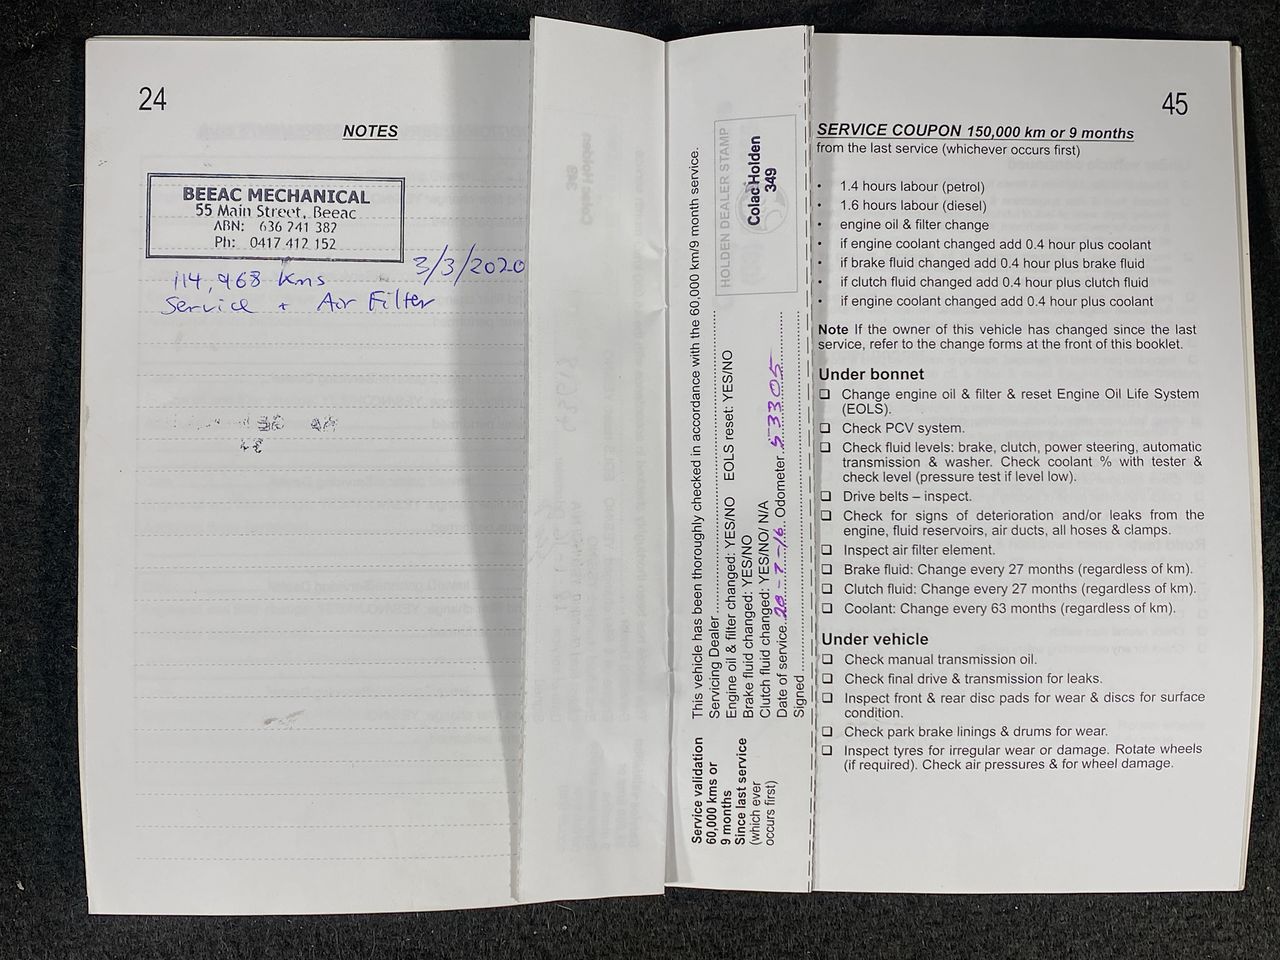 24
NOTES
BEEAC MECHANICAL
55 Main Street, Beeac
ABN: 636 741 382
Ph: 0417 412 152
3/3/2020
114,968 kms
Service + Air Filter
Service validation
60,000 kms or
9 months
Since last service
(which ever
occurs first)
This vehicle has been thoroughly checked in accordance with the 60,000 km/9 month service.
Servicing Dealer
Engine oil & filter changed: YES/NO EOLS reset: YES/NO
Brake fluid changed: YES/NO
Clutch fluid changed: YES/NO/ N/A
Date of service 20-7-16 Odometer 53305
Signed
HOLDEN DEALER STAMP
Colac Holden
349
45
SERVICE COUPON 150,000 km or 9 months
from the last service (whichever occurs first)
• 1.4 hours labour (petrol)
• 1.6 hours labour (diesel)
• engine oil & filter change
• if engine coolant changed add 0.4 hour plus coolant
• if brake fluid changed add 0.4 hour plus brake fluid
• if clutch fluid changed add 0.4 hour plus clutch fluid
• if engine coolant changed add 0.4 hour plus coolant
Note If the owner of this vehicle has changed since the last
service, refer to the change forms at the front of this booklet.
Under bonnet
❑ Change engine oil & filter & reset Engine Oil Life System
(EOLS).
❑ Check PCV system.
❑ Check fluid levels: brake, clutch, power steering, automatic
transmission & washer. Check coolant % with tester &
check level (pressure test if level low).
❑ Drive belts – inspect.
❑ Check for signs of deterioration and/or leaks from the
engine, fluid reservoirs, air ducts, all hoses & clamps.
❑ Inspect air filter element.
❑ Brake fluid: Change every 27 months (regardless of km).
❑ Clutch fluid: Change every 27 months (regardless of km).
❑ Coolant: Change every 63 months (regardless of km).
Under vehicle
❑ Check manual transmission oil.
❑ Check final drive & transmission for leaks.
❑ Inspect front & rear disc pads for wear & discs for surface
condition.
❑ Check park brake linings & drums for wear.
❑ Inspect tyres for irregular wear or damage. Rotate wheels
(if required). Check air pressures & for wheel damage.